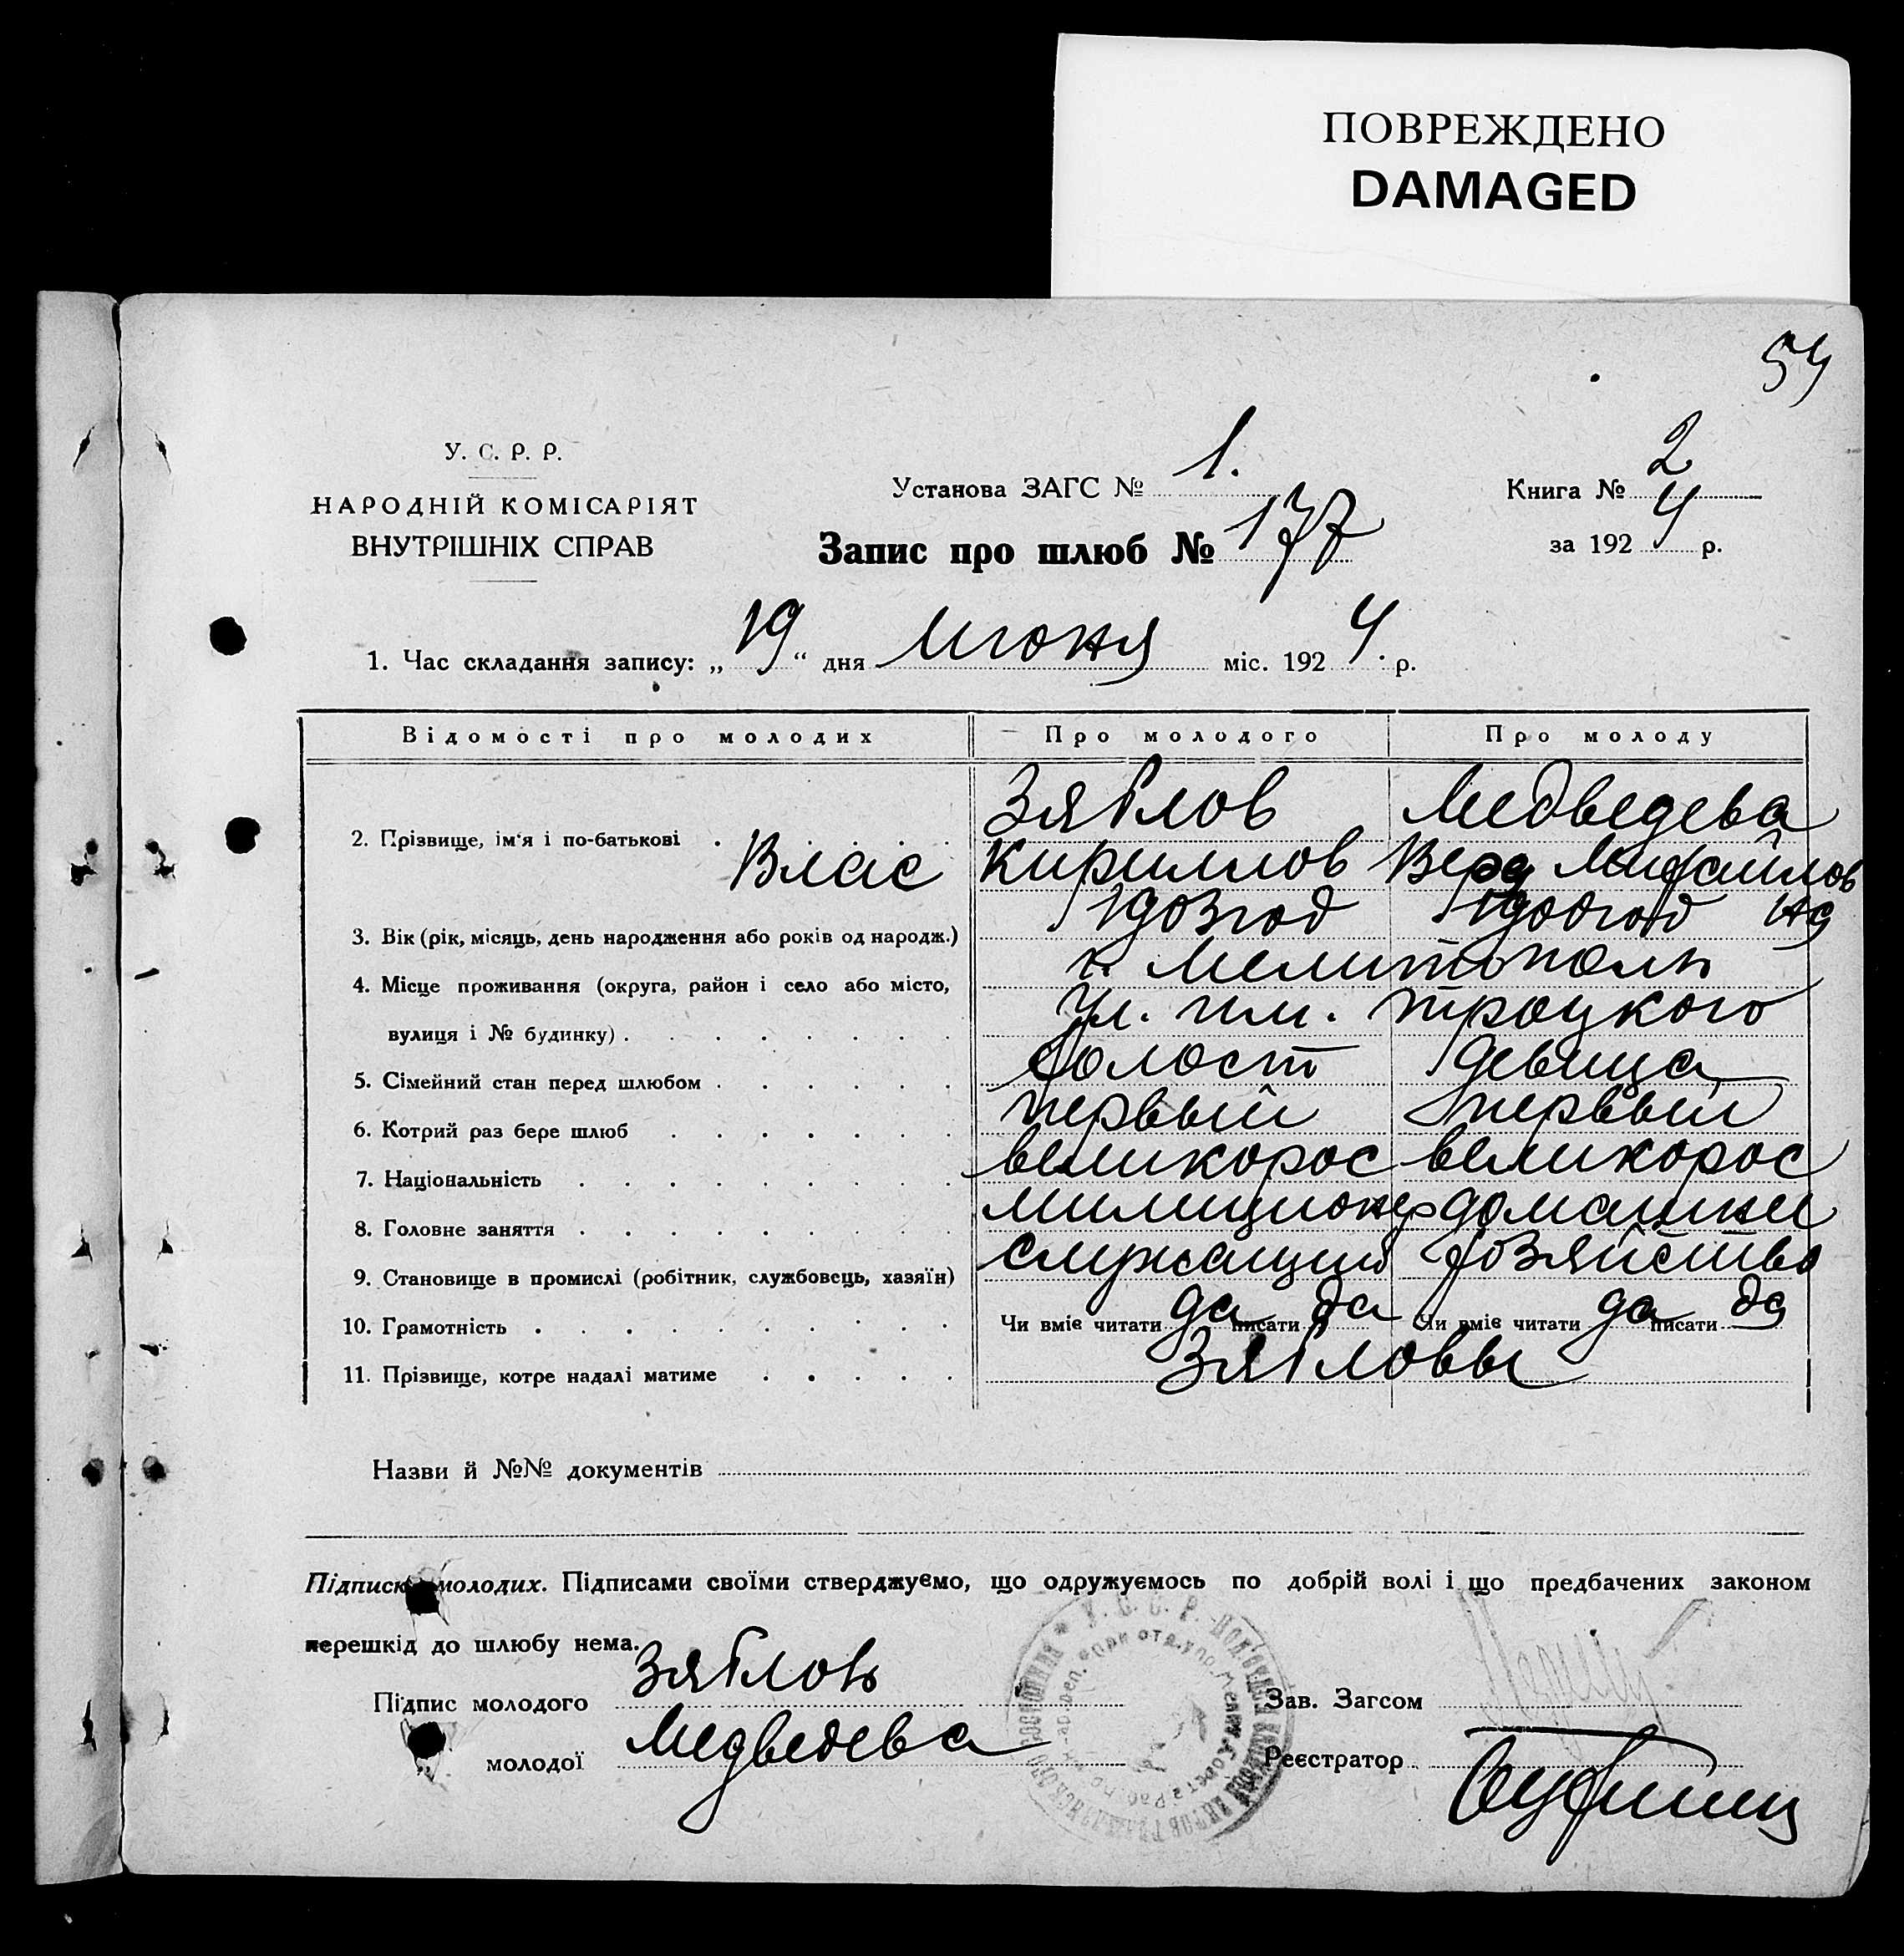 ПОВРЕЖДЕНО
DAMAGED
54
У. С. Р. Р.
НАРОДНІЙ КОМІСАРІЯТ
ВНУТРІШНІХ СПРАВ
Установа ЗАГС № 1.
Книга № 2
Запис про шлюб № 177
за 1924 р.
1. Час складання запису: „19“ дня Июня міс. 1924. р.
Відомості про молодих Про молодого Про молоду
Зяблов Медведева
2. Прізвище, ім'я і по-батькові Влас Кириллов Вера Михайлов
на
3. Вік (рік, місяць, день народження або років од народж.) 1903 год
4. Місце проживання (округа, район і село або місто, г. Мелитополь
вулиця і № будинку) ул. им. Троцкого
5. Сімейний стан перед шлюбом холост девица
6. Котрий раз бере шлюб первый первый
7. Національність великорос великорос
8. Головне заняття милиционер домашнее
9. Становище в промислі (робітник, службовець, хазяїн) служащий хозяйство
10. Грамотність Чи вміє читати да писати да Чи вміє читати да писати да
11. Прізвище, котре надалі матиме Зябловы
Назви й №№ документів
Підписк молодих. Підписами своїми стверджуємо, що одружуємось по добрій волі і що предбачених законом
перешкід до шлюбу нема.
Підпис молодого Зяблов
Зав. Загсом
молодої Медведева
Реєстратор